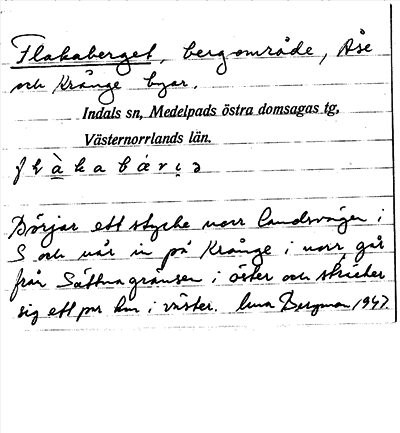 Flakaberget, bergområde, Åse
och Krånge byar.
Indals sn, Medelpads östra domsagas tg,
Västernorrlands län.
Börjar ett stycke norr landsvägen i
S och når in på Krånge i norr går
från Sättnagränsen i öster och sträcker
sig ett par km i väster. Bergman 1947.